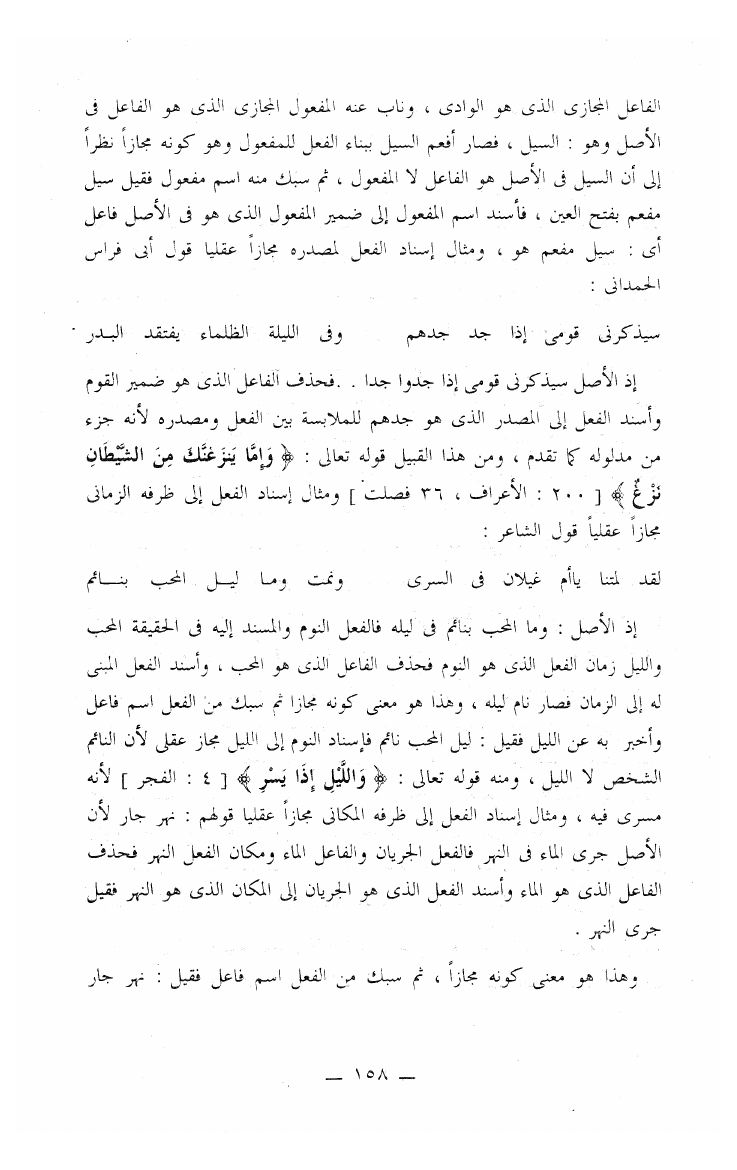 الفاعل المجازى الذى هو الوادى ، وناب عنه المفعول المجازى الذى هو الفاعل فى
الأصل وهو : السيل ، فصار أفعم السيل ببناء الفعل للمفعول وهو كونه مجازاً نظراً
إلى أن السيل فى الأصل هو الفاعل لا المفعول ، ثم سبك منه اسم مفعول فقيل سيل
مفعم بفتح العين ، فأسند اسم المفعول إلى ضمير المفعول الذى هو فى الأصل فاعل
أى : سيل مفعم هو ، ومثال إسناد الفعل لمصدره مجازاً عقليا قول أبى فراس
الحمدانى :
سيذكرنى قومى إذا جد جدهم وفى الليلة الظلماء يفتقد البدر
إذ الأصل سيذكرنى قومى إذا جدوا جدا . .فحذف الفاعل الذى هو ضمير القوم
وأسند الفعل إلى المصدر الذى هو جدهم للملابسة بين الفعل ومصدره لأنه جزء
من مدلوله كما تقدم ، ومن هذا القبيل قوله تعالى : ﴿ وَإِمَّا يَنزَغَنَّكَ مِنَ الشَّيْطَانِ
نَزْغٌ ﴾ [ ٢٠٠ : الأعراف ، ٣٦ فصلت ] ومثال إسناد الفعل إلى ظرفه الزمانى
مجازاً عقلياً قول الشاعر :
لقد لمتنا ياأم غيلان فى السرى ونمت وما ليـل المحب بنـائم
إذ الأصل : وما المحب بنائم فى ليله فالفعل النوم والمسند إليه فى الحقيقة المحب
والليل زمان الفعل الذى هو النوم فحذف الفاعل الذى هو المحب ، وأسند الفعل المبنى
له إلى الزمان فصار نام ليله ، وهذا هو معنى كونه مجازا ثم سبك من الفعل اسم فاعل
وأخبر به عن الليل فقيل : ليل المحب نائم فإسناد النوم إلى الليل مجاز عقلى لأن النائم
الشخص لا الليل ، ومنه قوله تعالى : ﴿ وَاللَّيْلِ إِذَا يَسْرِ ﴾ [ ٤ : الفجر ] لأنه
مسرى فيه ، ومثال إسناد الفعل إلى ظرفه المكانى مجازاً عقليا قولهم : نهر جار لأن
الأصل جرى الماء فى النهر فالفعل الجريان والفاعل الماء ومكان الفعل النهر فحذف
الفاعل الذى هو الماء وأسند الفعل الذى هو الجريان إلى المكان الذى هو النهر فقيل
جرى النهر .
وهذا هو معنى كونه مجازاً ، ثم سبك من الفعل اسم فاعل فقيل : نهر جار
— ١٥٨ —